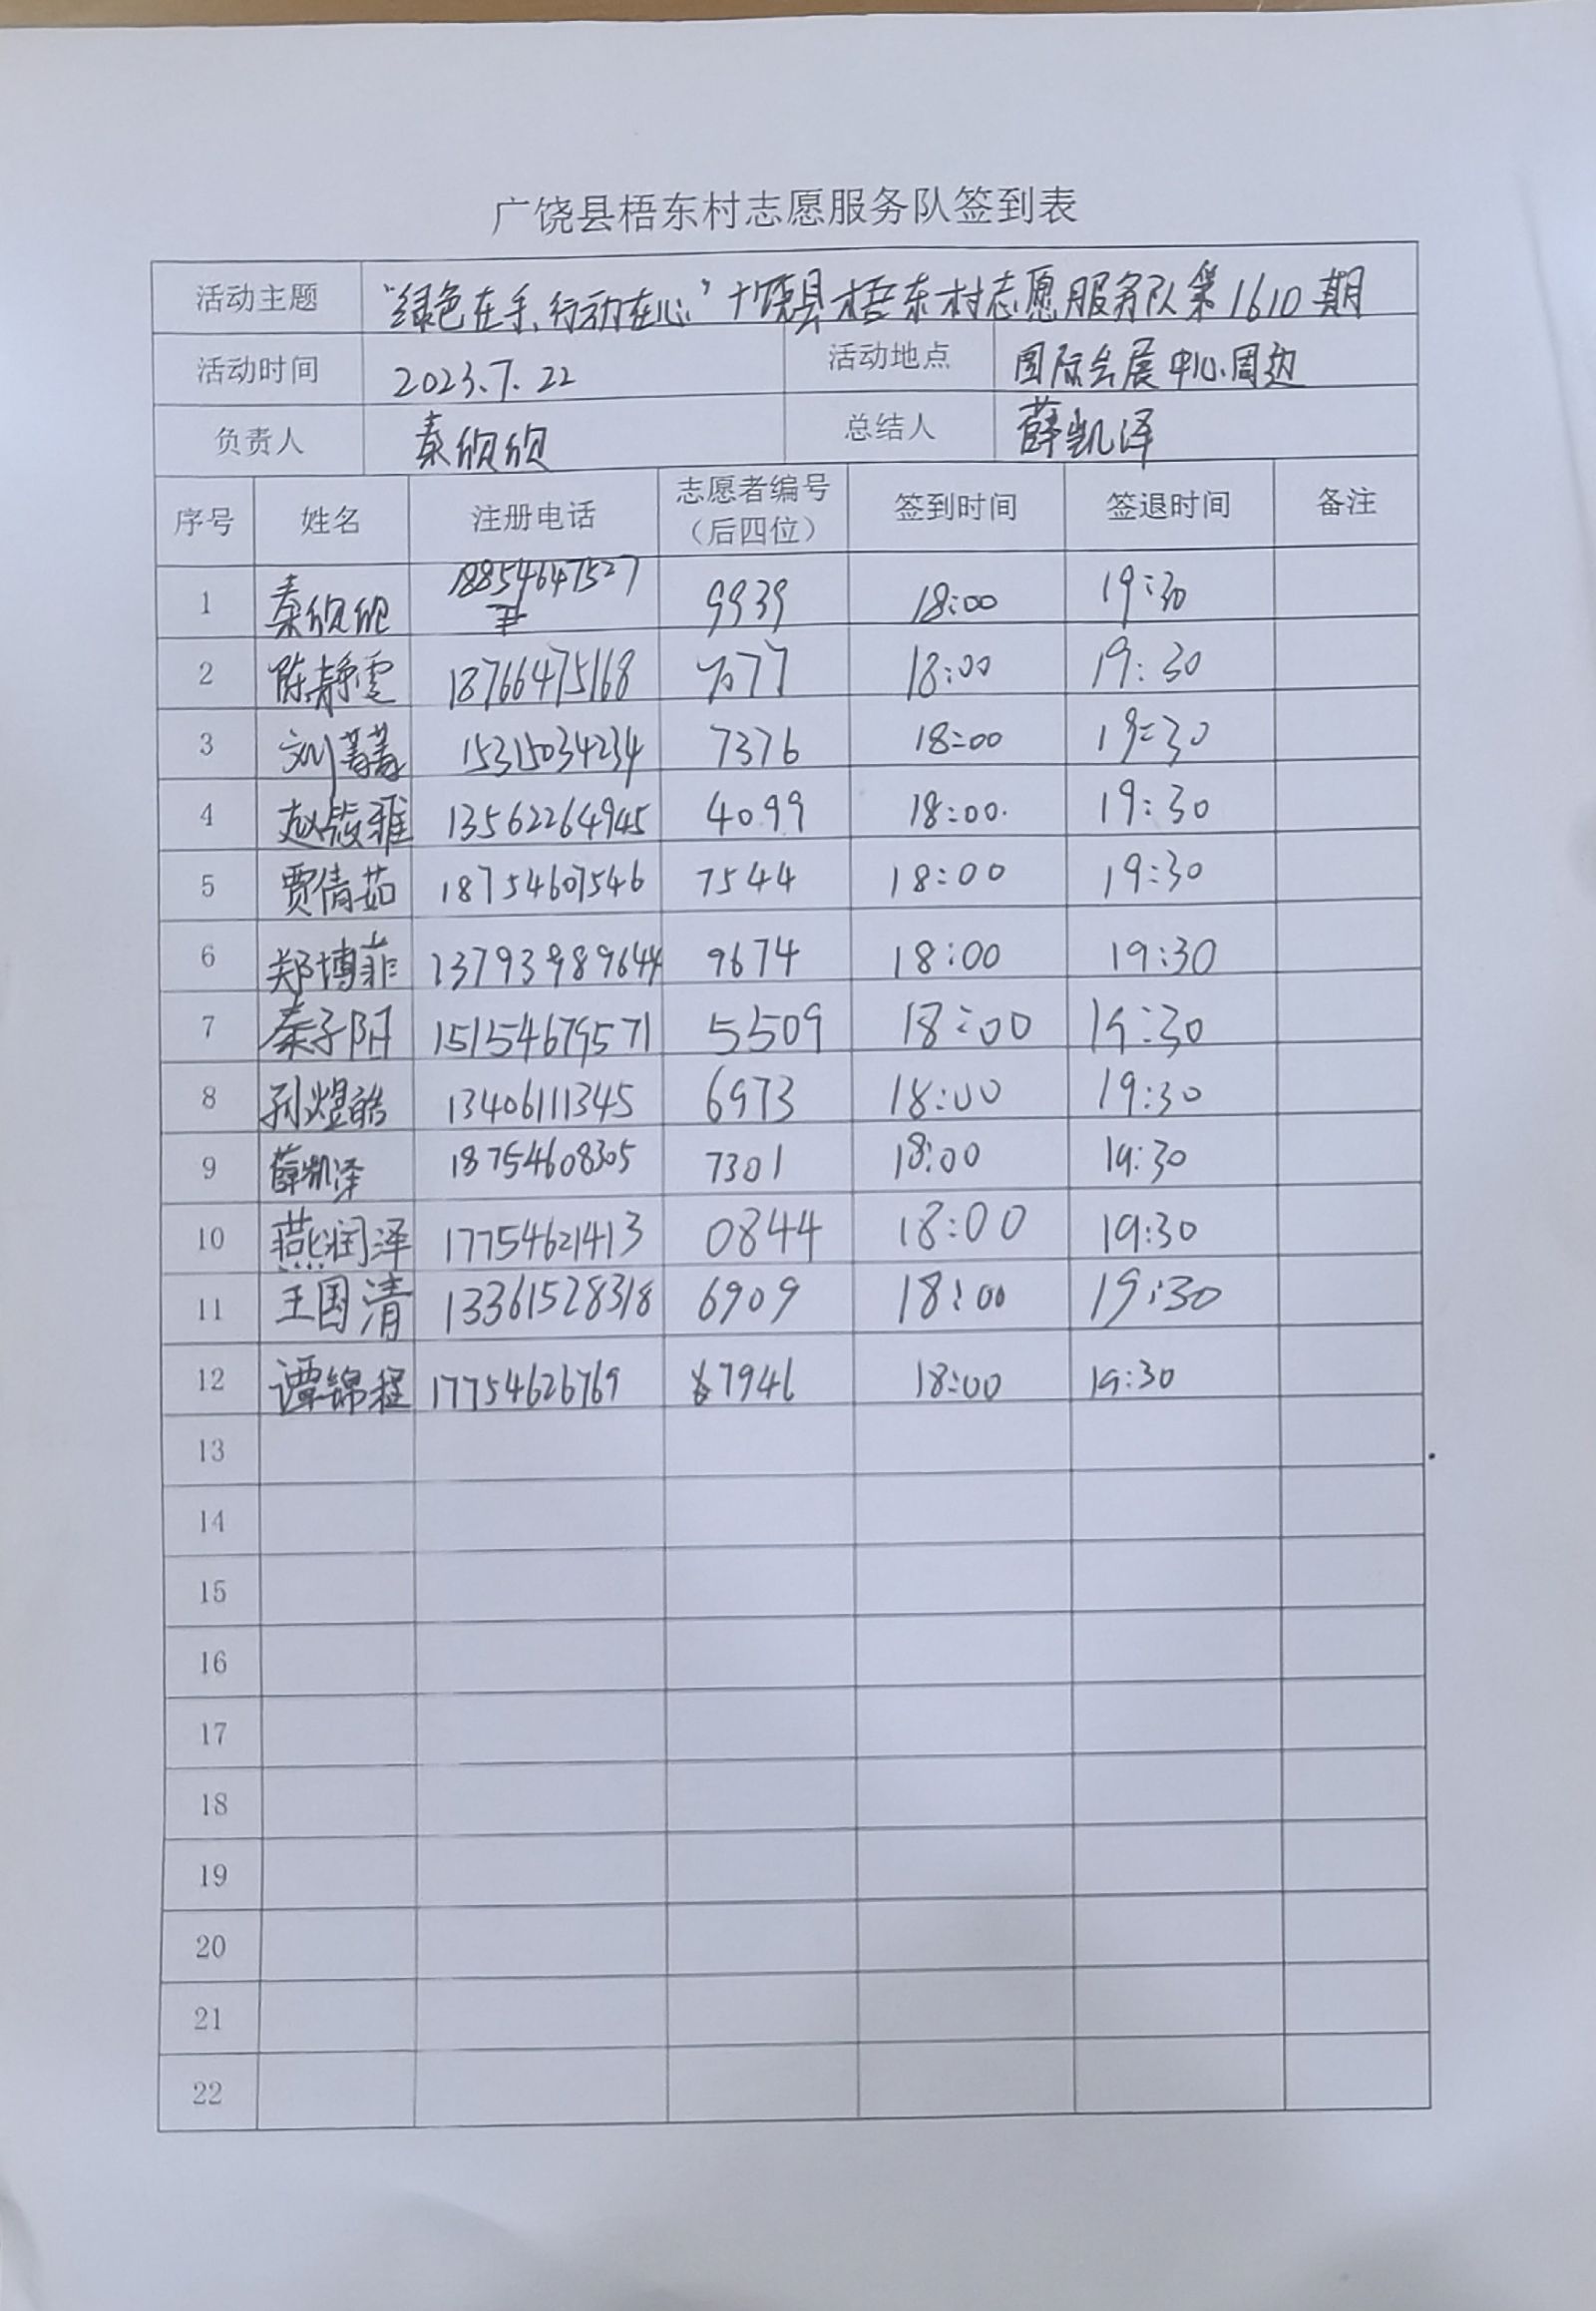 广饶县梧东村志愿服务队签到表
活动主题 “绿色在手、行动在心”广饶县梧东村志愿服务队第1610期
活动时间 2023.7.22 活动地点 国际会展中心周边
负责人 秦欣欣 总结人 薛凯泽
序号 姓名 注册电话 志愿者编号（后四位） 签到时间 签退时间 备注
1 秦欣欣 18854647527 9939 18:00 19:30
2 陈静雯 18766475168 7077 18:00 19:30
3 刘菁菁 15315034234 7376 18:00 19:30
4 赵筱雅 13562264945 4099 18:00 19:30
5 贾倩茹 18754607546 7544 18:00 19:30
6 郑博菲 13793989644 9674 18:00 19:30
7 秦子阳 15154679571 5509 18:00 19:30
8 孙煜皓 13406111345 6973 18:00 19:30
9 薛凯泽 18754608305 7301 18:00 19:30
10 燕润泽 17754621413 0844 18:00 19:30
11 王国清 13361528318 6909 18:00 19:30
12 谭锦程 17754626769 7946 18:00 19:30
13
14
15
16
17
18
19
20
21
22